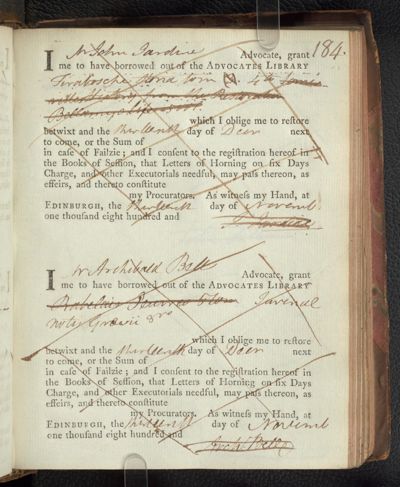 184.
I Mr John Jardine Advocate, grant
me to have borrowed out of the ADVOCATES LIBRARY
Tirabosche Storia tom 4to
which I oblige me to reſtore
betwixt and the thirteenth day of Decr next
to come, or the Sum of
in caſe of Failzie; and I conſent to the regiſtration hereof in
the Books of Seſſion, that Letters of Horning on ſix Days
Charge, and other Executorials needful, may paſs thereon, as
effeirs, and thereto conſtitute
my Procurators. As witneſs my Hand, at
EDINBURGH, the thirteenth day of Novemb.
one thouſand eight hundred and
J. Jardine
I Mr Archibald Bell Advocate, grant
me to have borrowed out of the ADVOCATES LIBRARY
Rabelais Juvenal
notis Grævii 8vo
which I oblige me to reſtore
betwixt and the thirteenth day of Decr next
to come, or the Sum of
in caſe of Failzie; and I conſent to the regiſtration hereof in
the Books of Seſſion, that Letters of Horning on ſix Days
Charge, and other Executorials needful, may paſs thereon, as
effeirs, and thereto conſtitute
my Procurators. As witneſs my Hand, at
EDINBURGH, the thirteenth day of Novemb
one thouſand eight hundred and
Archd Bell